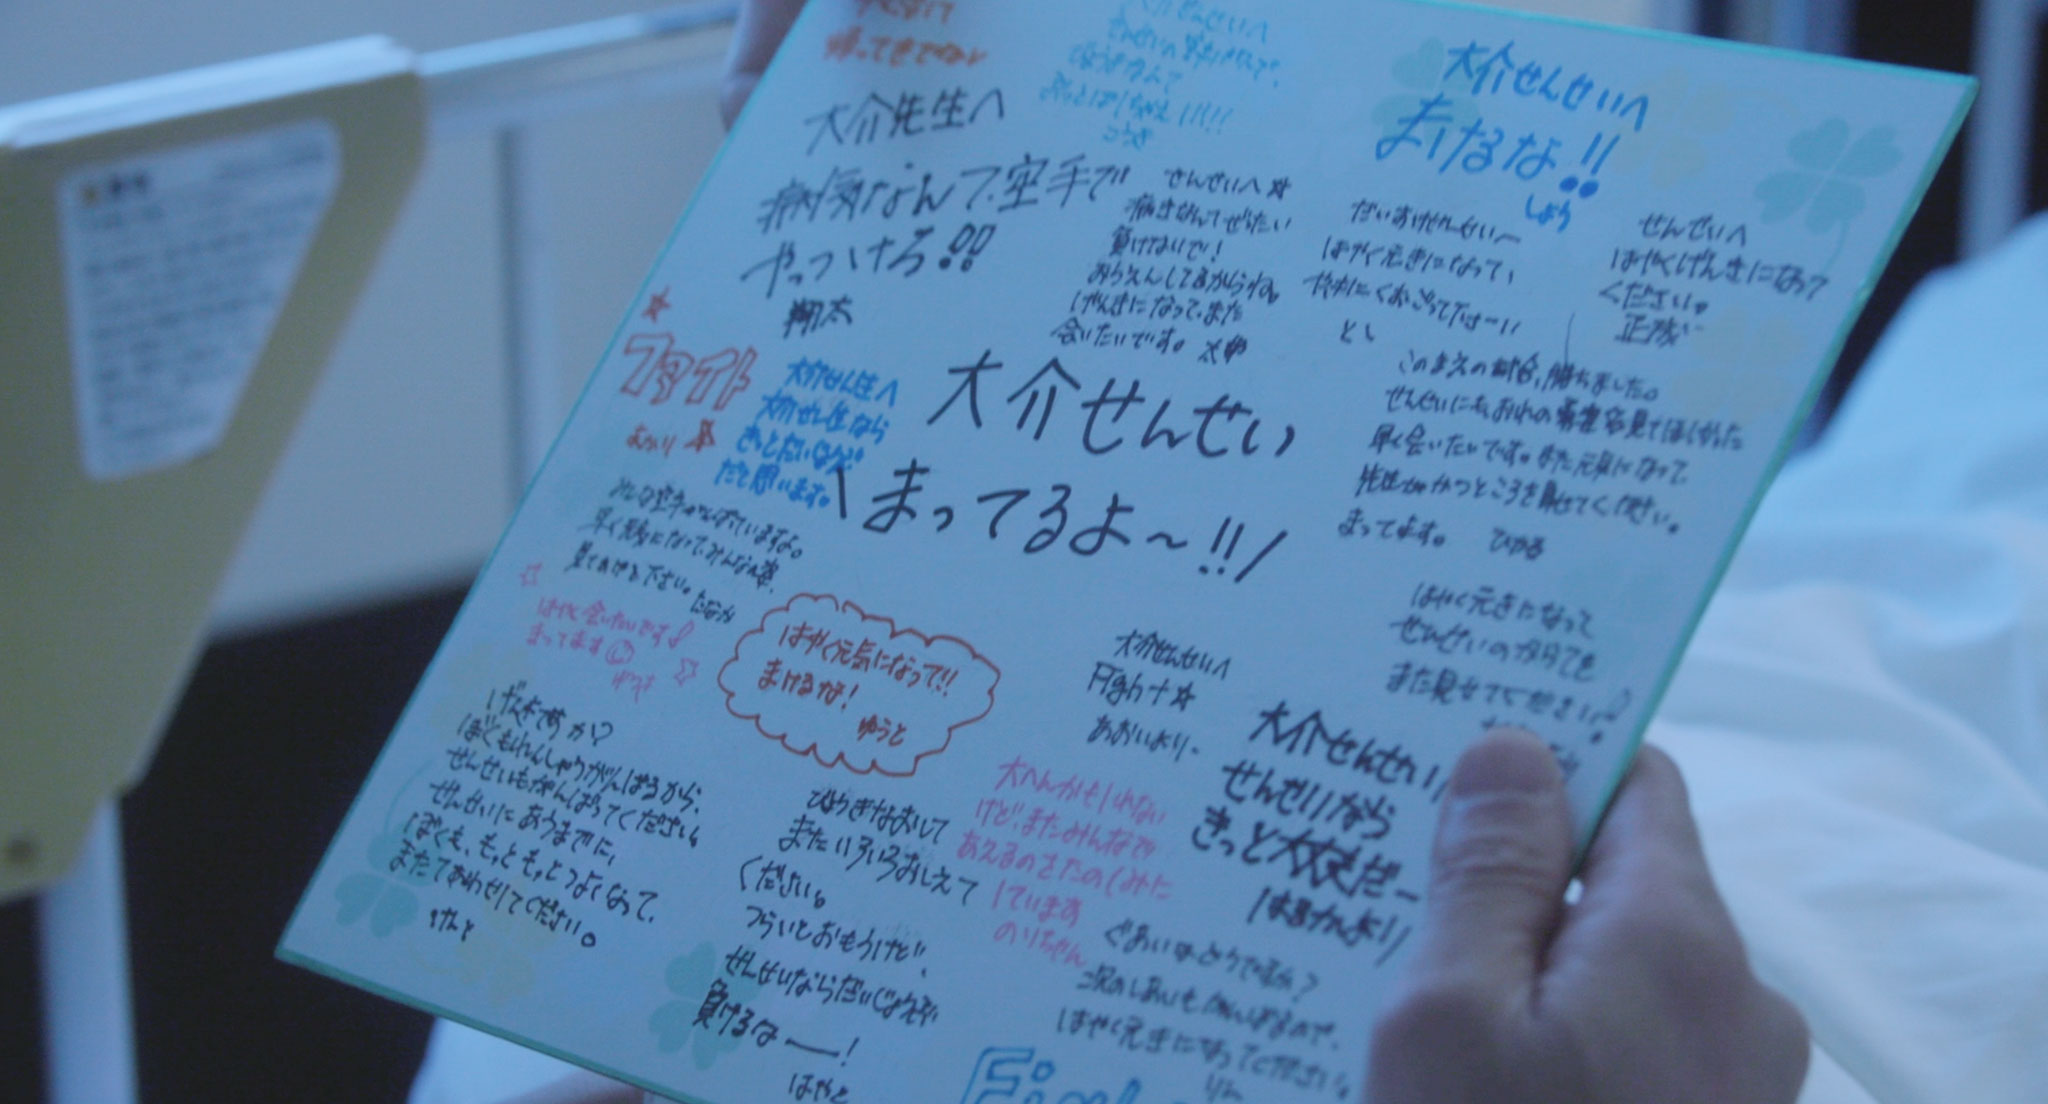 帰ってきてね
大介先生へ
病気なんて、空手で
やっつけろ!!
翔太
大介せんせいへ
まけるな!!
しょう
せんせいへ☆
負けないで!
おうえんしてるからね。
げんきになって、また
会いたいです。
だいすけせんせいへ
はやく元きになって、
とし
せんせいへ
はやくげんきになって
ください。
ファイト
大介せん生へ
大介せん生なら
きっとだいじょうぶ
だと思います。
大介せんせい
\まってるよ〜!!/
このまえの試合、勝ちました。
早く会いたいです。また元気になって
まってます。 ひかる
早く元気になって、みんなの姿、
見てあげて下さい。たなか
はやく会いたいです♪
まってます
はやく元気になって!!
まけるな!
ゆうと
大介せんせいへ
Fight☆
あおいより
はやく元きになって
せんせいのからてを
また見せてください!
げんきですか?
ぼくもれんしゅうがんばるから、
せんせいもがんばってください。
せんせいにあうまでに、
ぼくも、もっともっとつよくなって、
またてあわせしてください。
けんと
びょうきなおして
またいろいろおしえて
ください。
つらいとおもうけど、
せんせいならだいじょうぶ
負けるなー!
はやと
大へんかもしれない
けど、またみんなで
あえるのをたのしみに
しています
のりちゃん
大介せんせい
せんせいなら
きっと大丈夫だー
はるかより
ぐあいはどうですか?
次のしあいもがんばるので、
はやく元きになってください。
りん